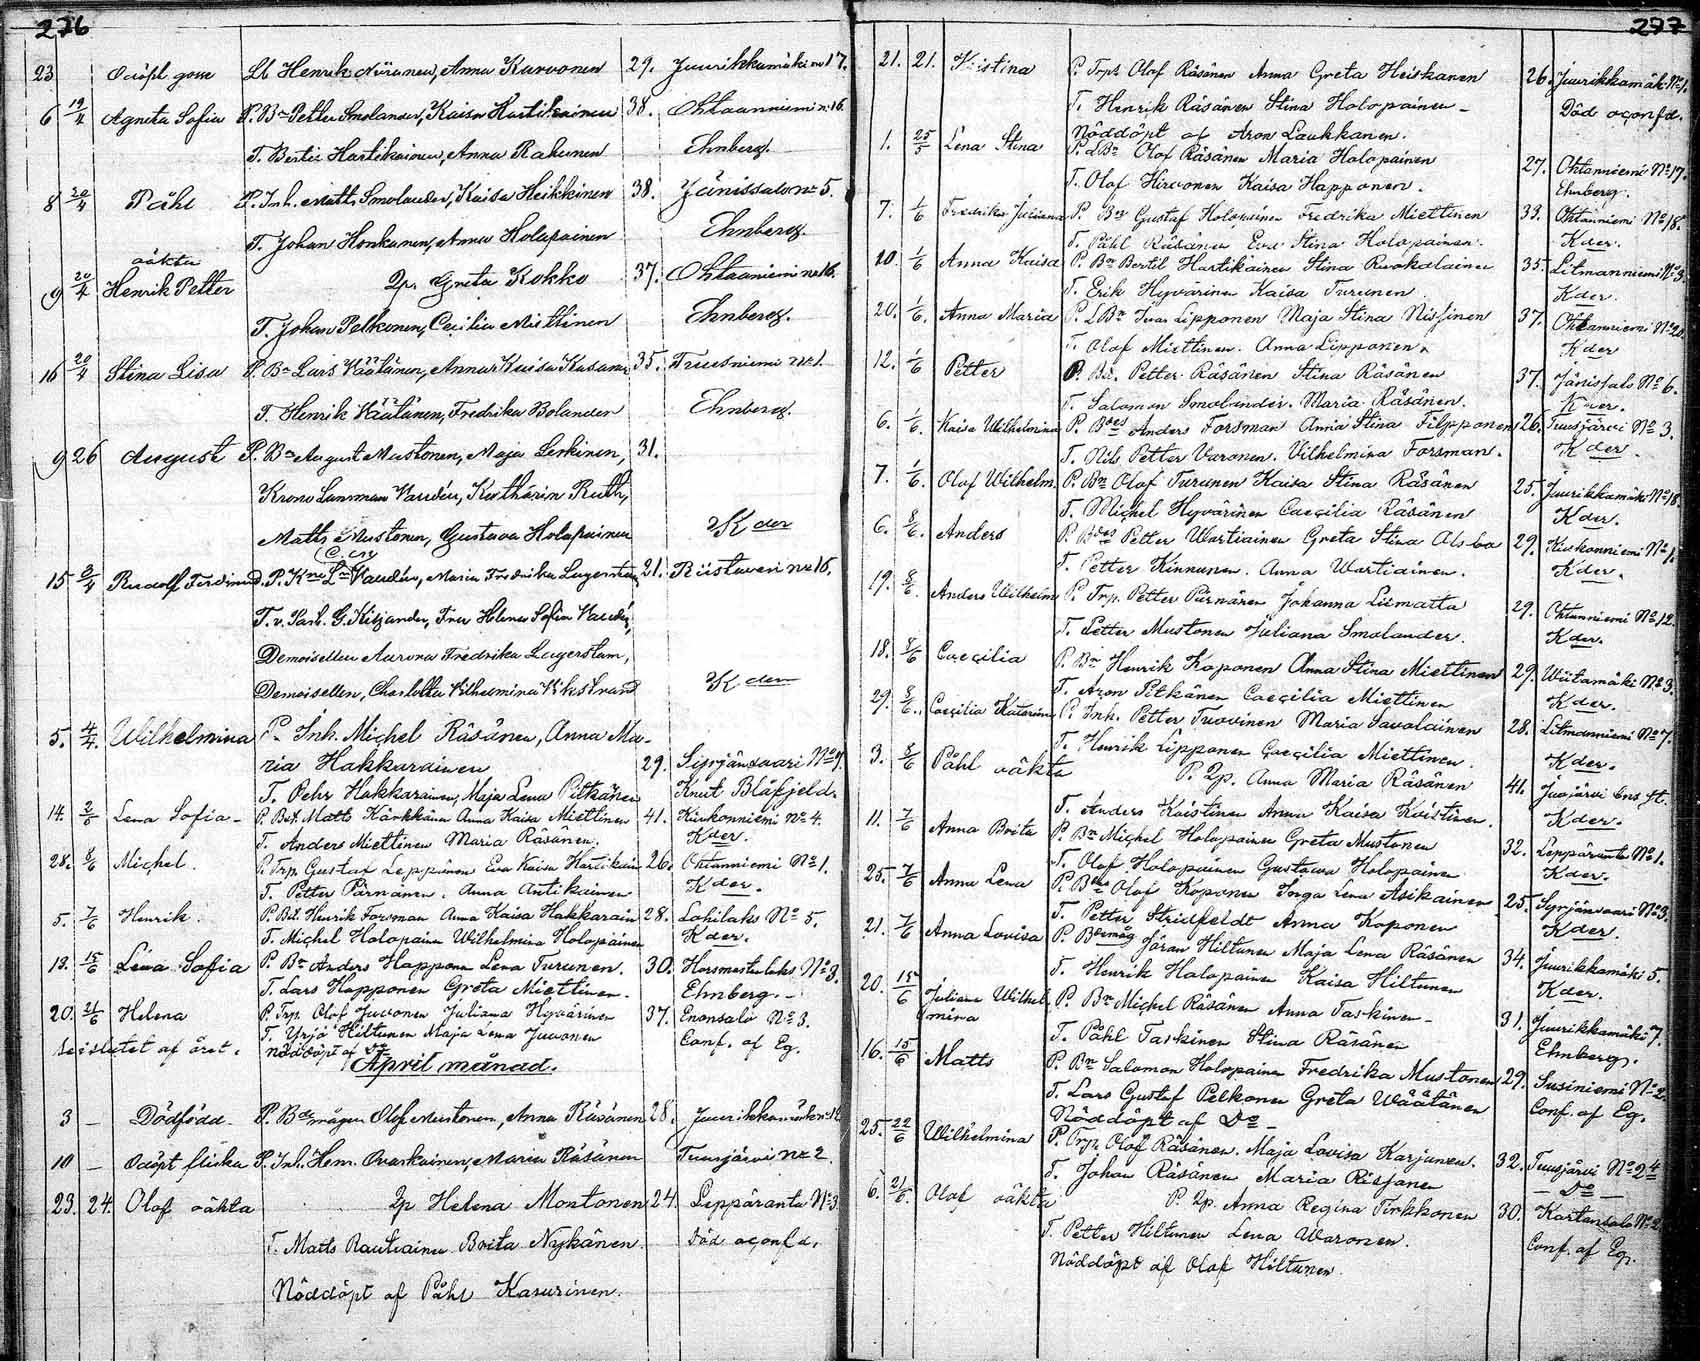 276
23 Odöpt gosse Lb Henrik Niiranen, Anna Karvonen 29. Juurikkamäki no 17.
6 19/4 Agneta Sofia P. Bn Petter Smolander, Kaisa Hartikainen 38. Ohtaanniemi no 16.
T. Bertil Hartikainen, Anna Rahunen Ehnberg.
8 20/4 Påhl P. Inh. Matts Smolander, Kaisa Heikkinen 38. Jänissalo no 5.
T. Johan Honkanen, Anna Holopainen Ehnberg.
oäkta
9 20/4 Henrik Petter Qp. Greta Kokko 37. Ohtaaniemi no 16.
T. Johan Pelkonen, Cecilia Miettinen Ehnberg.
16 20/4 Stina Lisa P. Bn Lars Väätänen, Anna Kaisa Kasanen 35. Truusniemi no 1.
T. Henrik Väätänen, Fredrika Bolander Ehnberg.
9 26 August P. Bn August Mustonen, Maja Leskinen, 31.
Krono Lansman Vaudén, Kathärin Ruth,
Matts Mustonen, Gustava Holopainen Kder
15 3/4 Rudolf Ferdinand. P. Kno Ln Vaudén, Maria Fredrika Lagerstam 21. Riistaveri no 16.
T. v. Past. G. Kitzander, Fru Helena Sofia Vaudén,
Demoisellen Aurora Fredrika Lagerstam,
Demoisellen, Charlotta Vilhelmina Vikstrand Kder
5. 4/4. Wilhelmina P. Inh. Michel Räsänen, Anna Ma-
ria Hakkarainen 29. Syrjänvaari No 9.
T. Pehr Hakkarainen, Maja Lena Pitkänen Knut Blåfjeld.
14. 2/6 Lena Sofia - P. Bst. Matts Kärkkäinen Anna Kaisa Miettinen 41. Kirkonniemi No 4.
T. Anders Miettinen Maria Räsänen. Kder.
28. 8/6 Michel. P. Trp Gustaf Leppänen Eva Kaisa Hartikain 26. Ohtanniemi No 1.
T. Petter Pärnänen. Anna Antikainen Kder.
5. 7/6 Henrik. P. Bst. Henrik Forsman Anna Kaisa Hakkarain 28. Lohilaks No 5.
T. Michel Holopainen Wilhelmina Holopainen Kder.
13. 15/6 Lena Sofia P. Bn Anders Happonen Lena Turunen. 30. Horsmastilaks No 3.
T. Lars Happonen Greta Miettinen. Ehnberg.
20. 21/6 Helena P. Trp. Olof Juvonen Juliana Hyvärinen 37. Enonsalo No 3.
T. Yrjö Hiltunen Maja Lena Juvonen Conf. af Eg.
nöddöpt af Do
April månad.
3 - Dödfödd - P. Bdemågen Olof Mustonen, Anna Räsänen 28. Juurikkamäki no 12
10 - Odöpt flicka P. Inh. Henr. Ovaskainen, Maria Räsänen Tuusjärvi no 2
23. 24. Olof oäkta Qp Helena Montonen 24. Leppäranta No 3.
T. Matts Rautiainen Brita Nykänen. död oconfd.
Nöddöpt af Påhl Kasurinen.
277
21. 21. Kristina P. Trpt Olof Räsänen Anna Greta Heiskanen 26. Juurikkamäki No 1.
T. Henrik Räsänen Stina Holopainen - Död oconfd.
Nöddöpt af Aron Laukkanen.
1. 25/5 Lena Stina P. dBn Olof Räsänen Maria Holopainen 27. Ohtanniemi No 17.
T. Olof Hirvonen Kaisa Happonen. Ehnberg.
7. 1/6 Fredrika Juliana P. Bn Gustaf Holopainen Fredrika Miettinen 33. Ohtanniemi No 18.
T. Påhl Räsänen Eva Stina Holopainen. Kder.
20. 1/6 Anna Kaisa P. Bn Bertil Hartikainen Stina Ruokolainen 35. Litmanniemi No 3.
T. Erik Hyvärinen Kaisa Turunen. Kder.
20. 1/6. Anna Maria P. LBn Ivar Lipponen Maja Stina Nissinen 37. Ohtanniemi No 20.
T. Olof Miettinen. Anna Lipponen. Kder
12. 1/6 Petter P. Bn. Petter Räsänen Stina Räsänen 37. Jänissalo No 6.
T. Salomon Smolander. Maria Räsänen. Kder.
6. 1/6. Kaisa Wilhelmina P. Bdes Anders Forsman Anna Stina Filpponen 26. Tuusjärvi No 3.
T. Nils Petter Varonen. Vilhelmina Forsman. Kder.
7. 1/6. Olof Wilhelm. P. Bn Olof Turunen Kaisa Stina Räsänen 25. Juurikkamäki No 18.
T. Michel Hyvärinen Caecilia Räsänen Kder.
6. 8/6. Anders P. Bdes Petter Wartiainen Greta Stina Alsbo 29. Kirkonniemi No 1.
T. Petter Kinnunen. Anna Wartiainen. Kder.
19. 8/6. Anders Wilhelm P. Trp. Petter Pärnänen Johanna Liimatta 29. Ohtanniemi No 12.
T. Petter Mustonen Juliana Smolander. Kder.
18. 8/6 Caecilia P. Bn Henrik Koponen Anna Stina Miettinen 29. Wiitamäki No 3.
T. Aron Pitkänen Caecilia Miettinen Kder.
29. 8/6. Caecilia Katarina P. Inh. Petter Tuovinen Maria Savolainen 28. Litmaniemi No 7.
T. Henrik Lipponen Caecilia Miettinen. Kder.
3. 8/6 Påhl oäkta P. Qp. Anna Maria Räsänen 41. Juojärvi Ens st.
T. Anders Koistinen Anna Kaisa Koistinen. Kder.
11. 7/6 Anna Brita P. Bn Michel Holopainen Greta Mustonen 32. Leppäranta No 1.
T. Olof Holopainen Gustava Holopainen Kder.
25. 7/6 Anna Lena P. Bdes Olof Koponen Inga Lena Asikainen 25. Syrjänvaari No 3.
T. Petter Stridfeldt Anna Koponen Kder.
21. 7/6 Anna Lovisa P. Bdemåg Jöran Hiltunen Maja Lena Räsänen 34. Juurikkamäki 5.
T. Henrik Holopainen Kaisa Hiltunen Kder.
20. 15/6 Juliana Wilhel P. Bn Michel Räsänen Anna Taskinen - 31. Juurikkamäki 7.
mina T. Påhl Taskinen Stina Räsänen Ehnberg.
16. 15/6 Matts P. Bn Salomon Holopainen Fredrika Mustonen 29. Susiniemi No 2
T. Lars Gustaf Pelkonen Greta Wäätänen Conf. af Eg.
Nöddöpt af Do -
25. 22/6 Wilhelmina P. Trp. Olof Räsänen. Maja Lovisa Karjunen. 32. Tuusjärvi No 2 4
T. Johan Räsänen Maria Risjanen - Do -
6. 21/6 Olof oäkta P. Qp. Anna Regina Tirkkonen 30. Kartansalo No 2
T. Petter Hiltunen Lena Waronen. Conf. af Eg.
Nöddöpt af Olof Hiltunen.